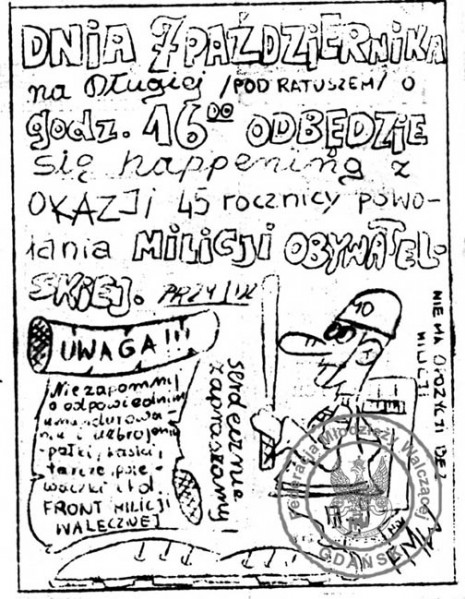 DNIA 7 PAŹDZIERNIKA
na Długiej /POD RATUSZEM/ o
godz. 16⁰⁰ ODBĘDZIE
się happening z
OKAZJI 45 rocznicy powo-
łania MILICJI OBYWATEL-
SKIEJ. PRZYJDŹ
UWAGA!!!
Nie zapomnij
o odpowiednim
umundurowa-
niu i uzbrojeniu
-pałki, kaski,
tarcze, psie-
waczki itd
FRONT MILICJI
WALECZNEJ
serdecznie
zapraszamy!
10
NIE MA OPOZYCJI BEZ
MILICJI
FMW
Federacja Młodzieży Walczącej
GDAŃSK